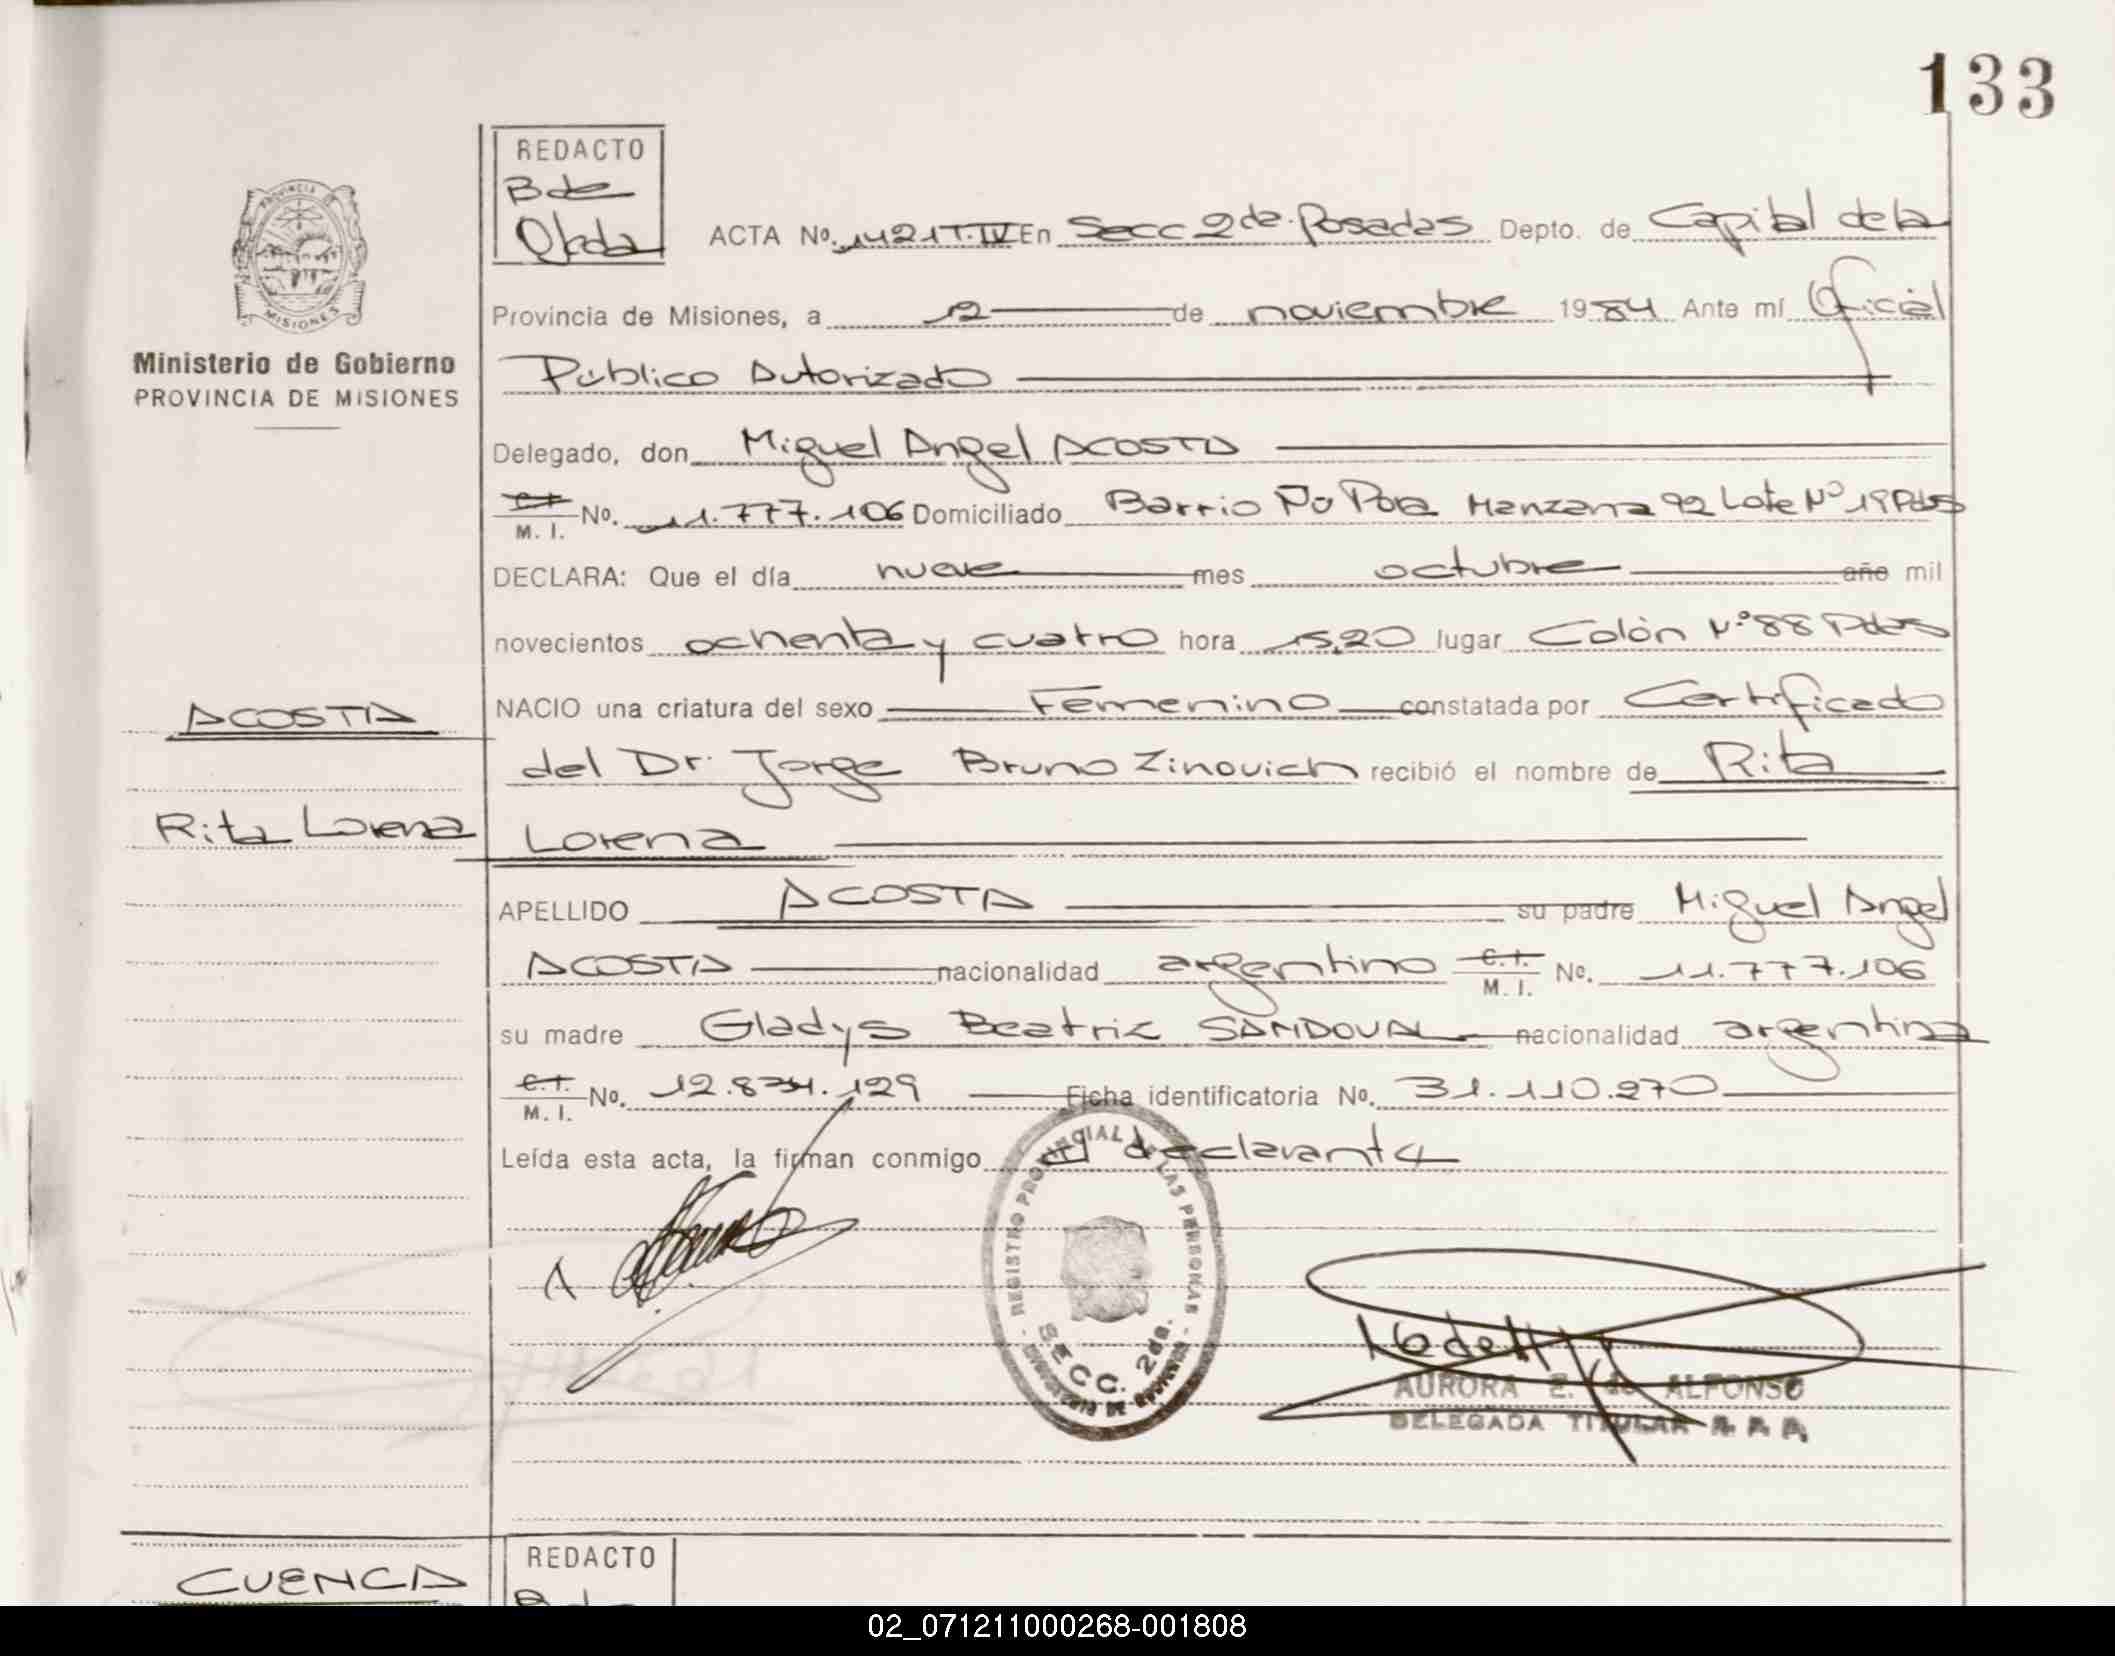 133
REDACTO
B de
Ojeda
ACTA Nº. 1421 T. IV En Secc 2da. Posadas Depto. de Capital de la
PROVINCIA DE
MISIONES
Provincia de Misiones, a 2 de noviembre 1984 Ante mí Oficial
Ministerio de Gobierno
PROVINCIA DE MISIONES
Público Autorizado
Delegado, don Miguel Angel ACOSTA
C. I.
M. I. Nº. 11.777.106 Domiciliado Barrio Ñu Pora Manzana 92 Lote Nº 19 Pdas
DECLARA: Que el día nueve mes octubre año mil
novecientos ochenta y cuatro hora 15,20 lugar Colón Nº 88 Pdas
ACOSTA
NACIO una criatura del sexo Femenino constatada por Certificado
del Dr. Jorge Bruno Zinovich recibió el nombre de Rita
Rita Lorena
Lorena
APELLIDO ACOSTA su padre Miguel Angel
ACOSTA nacionalidad argentino C. I. M. I. Nº. 11.777.106
su madre Gladys Beatriz SANDOVAL nacionalidad argentina
C. I.
M. I. Nº. 12.834.129 Ficha identificatoria No. 31.110.270
Leída esta acta, la firman conmigo el declarante
REGISTRO PROVINCIAL DE LAS PERSONAS
SECC. 2da.
AURORA E. de ALFONSO
DELEGADA TITULAR
CUENCA
REDACTO
02_071211000268-001808